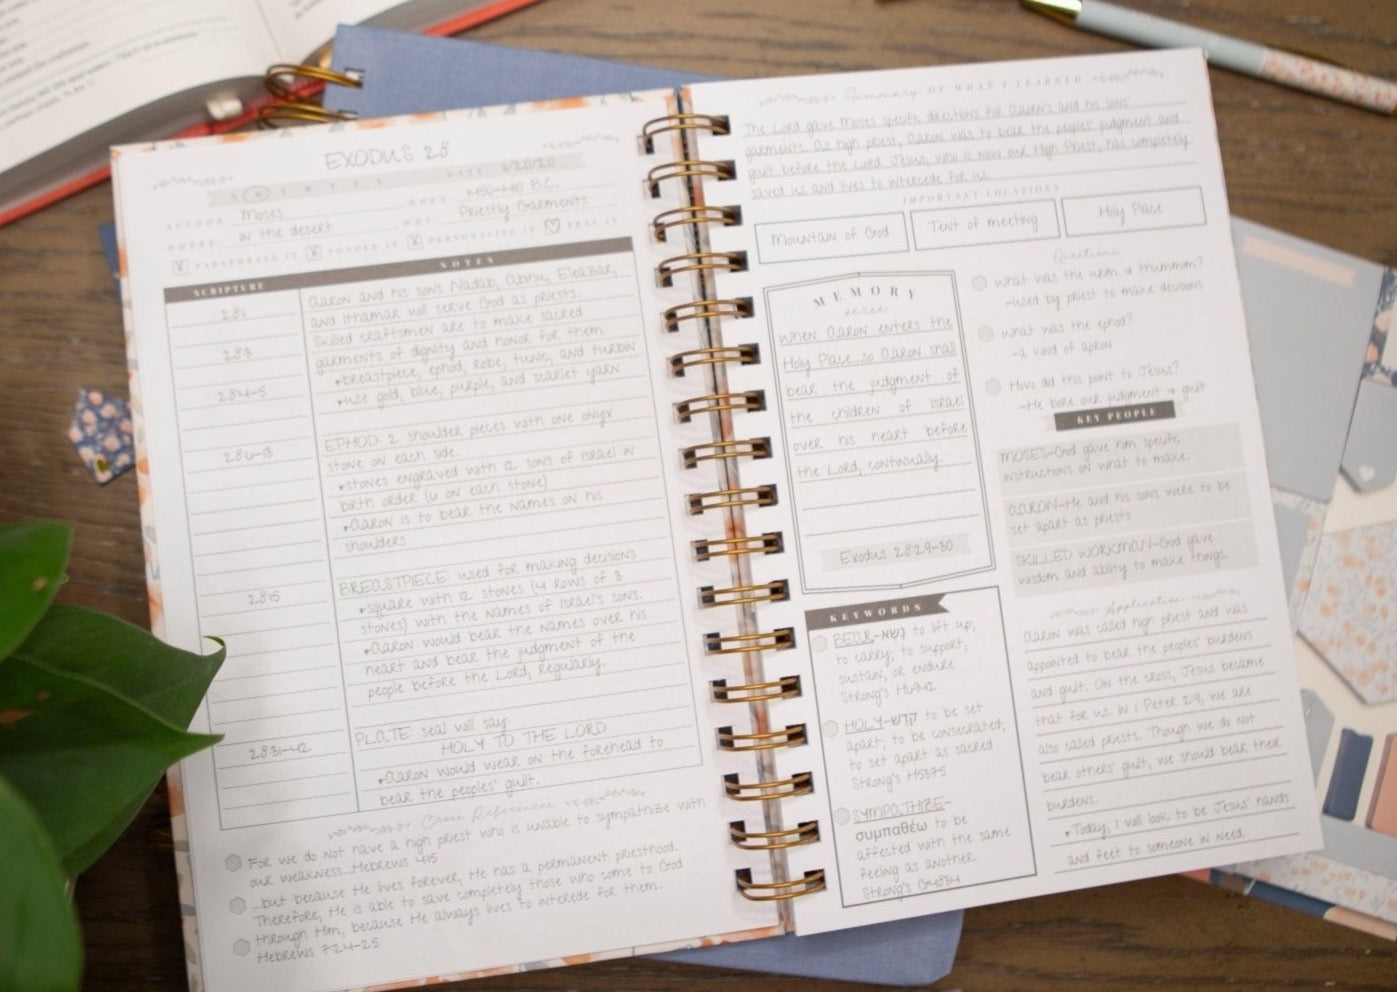 EXODUS 28
S M T W T F S
DATE: 4/20/20
AUTHOR: Moses
WHEN: B.C.
WHERE: in the desert
WHY: Priestly Garments
PARAPHRASE IT PONDER IT PERSONALIZE IT PRAY IT
SCRIPTURE
NOTES
28:1
Aaron and his sons Nadab, Abihu, Eleazar,
and Ithamar will serve God as priests.
28:3
Skilled craftsmen are to make sacred
garments of dignity and honor for them:
•breastpiece, ephod, robe, tunic, and turbin
28:4-5
•use gold, blue, purple, and scarlet yarn
28:6-13
EPHOD: 2 shoulder pieces with one onyx
stone on each side.
•stones engraved with 12 sons of Israel in
birth order (6 on each stone)
•Aaron is to bear the names on his
shoulders
28:15
BREASTPIECE: used for making decisions
•square with 12 stones (4 rows of 3
stones) with the names of Israel's sons.
•Aaron would bear the names over his
heart and bear the judgment of the
people before the Lord, regularly.
28:31-42
PLATE: seal will say:
HOLY TO THE LORD
•Aaron would wear on the forehead to
bear the peoples' guilt.
Cross References
For we do not have a high priest who is unable to sympathize with
our weakness...Hebrews 4:15
...but because He lives forever, He has a permanent priesthood.
Therefore, He is able to save completely those who come to God
through Him, because He always lives to interede for them.
Hebrews 7:24-25
Summary OF WHAT I LEARNED
The Lord gave Moses specific directions for Aaron's and his sons'
garments. As high priest, Aaron was to bear the peoples' judgment and
guilt before the Lord. Jesus, who is now our High Priest, has completely
saved us and lives to intercede for us.
IMPORTANT LOCATIONS
Mountain of God
Tent of meeting
Holy Place
MEMORY
verse
When Aaron enters the
Holy Place...so Aaron shall
bear the judgment of
the children of Israel
over his heart before
the Lord, continually.
Exodus 28:29-30
Questions
what was the urim & thummim?
-used by priest to make decisions
what was the ephod?
-a kind of apron
How did this point to Jesus?
-He bore our judgment & guilt
KEY PEOPLE
MOSES-God gave him specific
instructions on what to make.
AARON-He and his sons were to be
set apart as priests
SKILLED WORKMAN-God gave
wisdom and ability to make things.
KEYWORDS
BEAR-נשא to lift up;
to carry; to support;
sustain, or endure
Strong's
HOLY-קדש to be set
apart; to be consecrated;
to set apart as sacred
Strong's
SYMPATHIZE-
συμπαθέω to be
affected with the same
feeling as another.
Strong's G4834
Application
Aaron was called high priest and was
appointed to bear the peoples' burdens
and guilt. On the cross, Jesus became
that for us. In 1 Peter 2:9, we are
also called priests. Though we do not
bear others' guilt, we should bear their
burdens.
•Today, I will look to be Jesus' hands
and feet to someone in need.